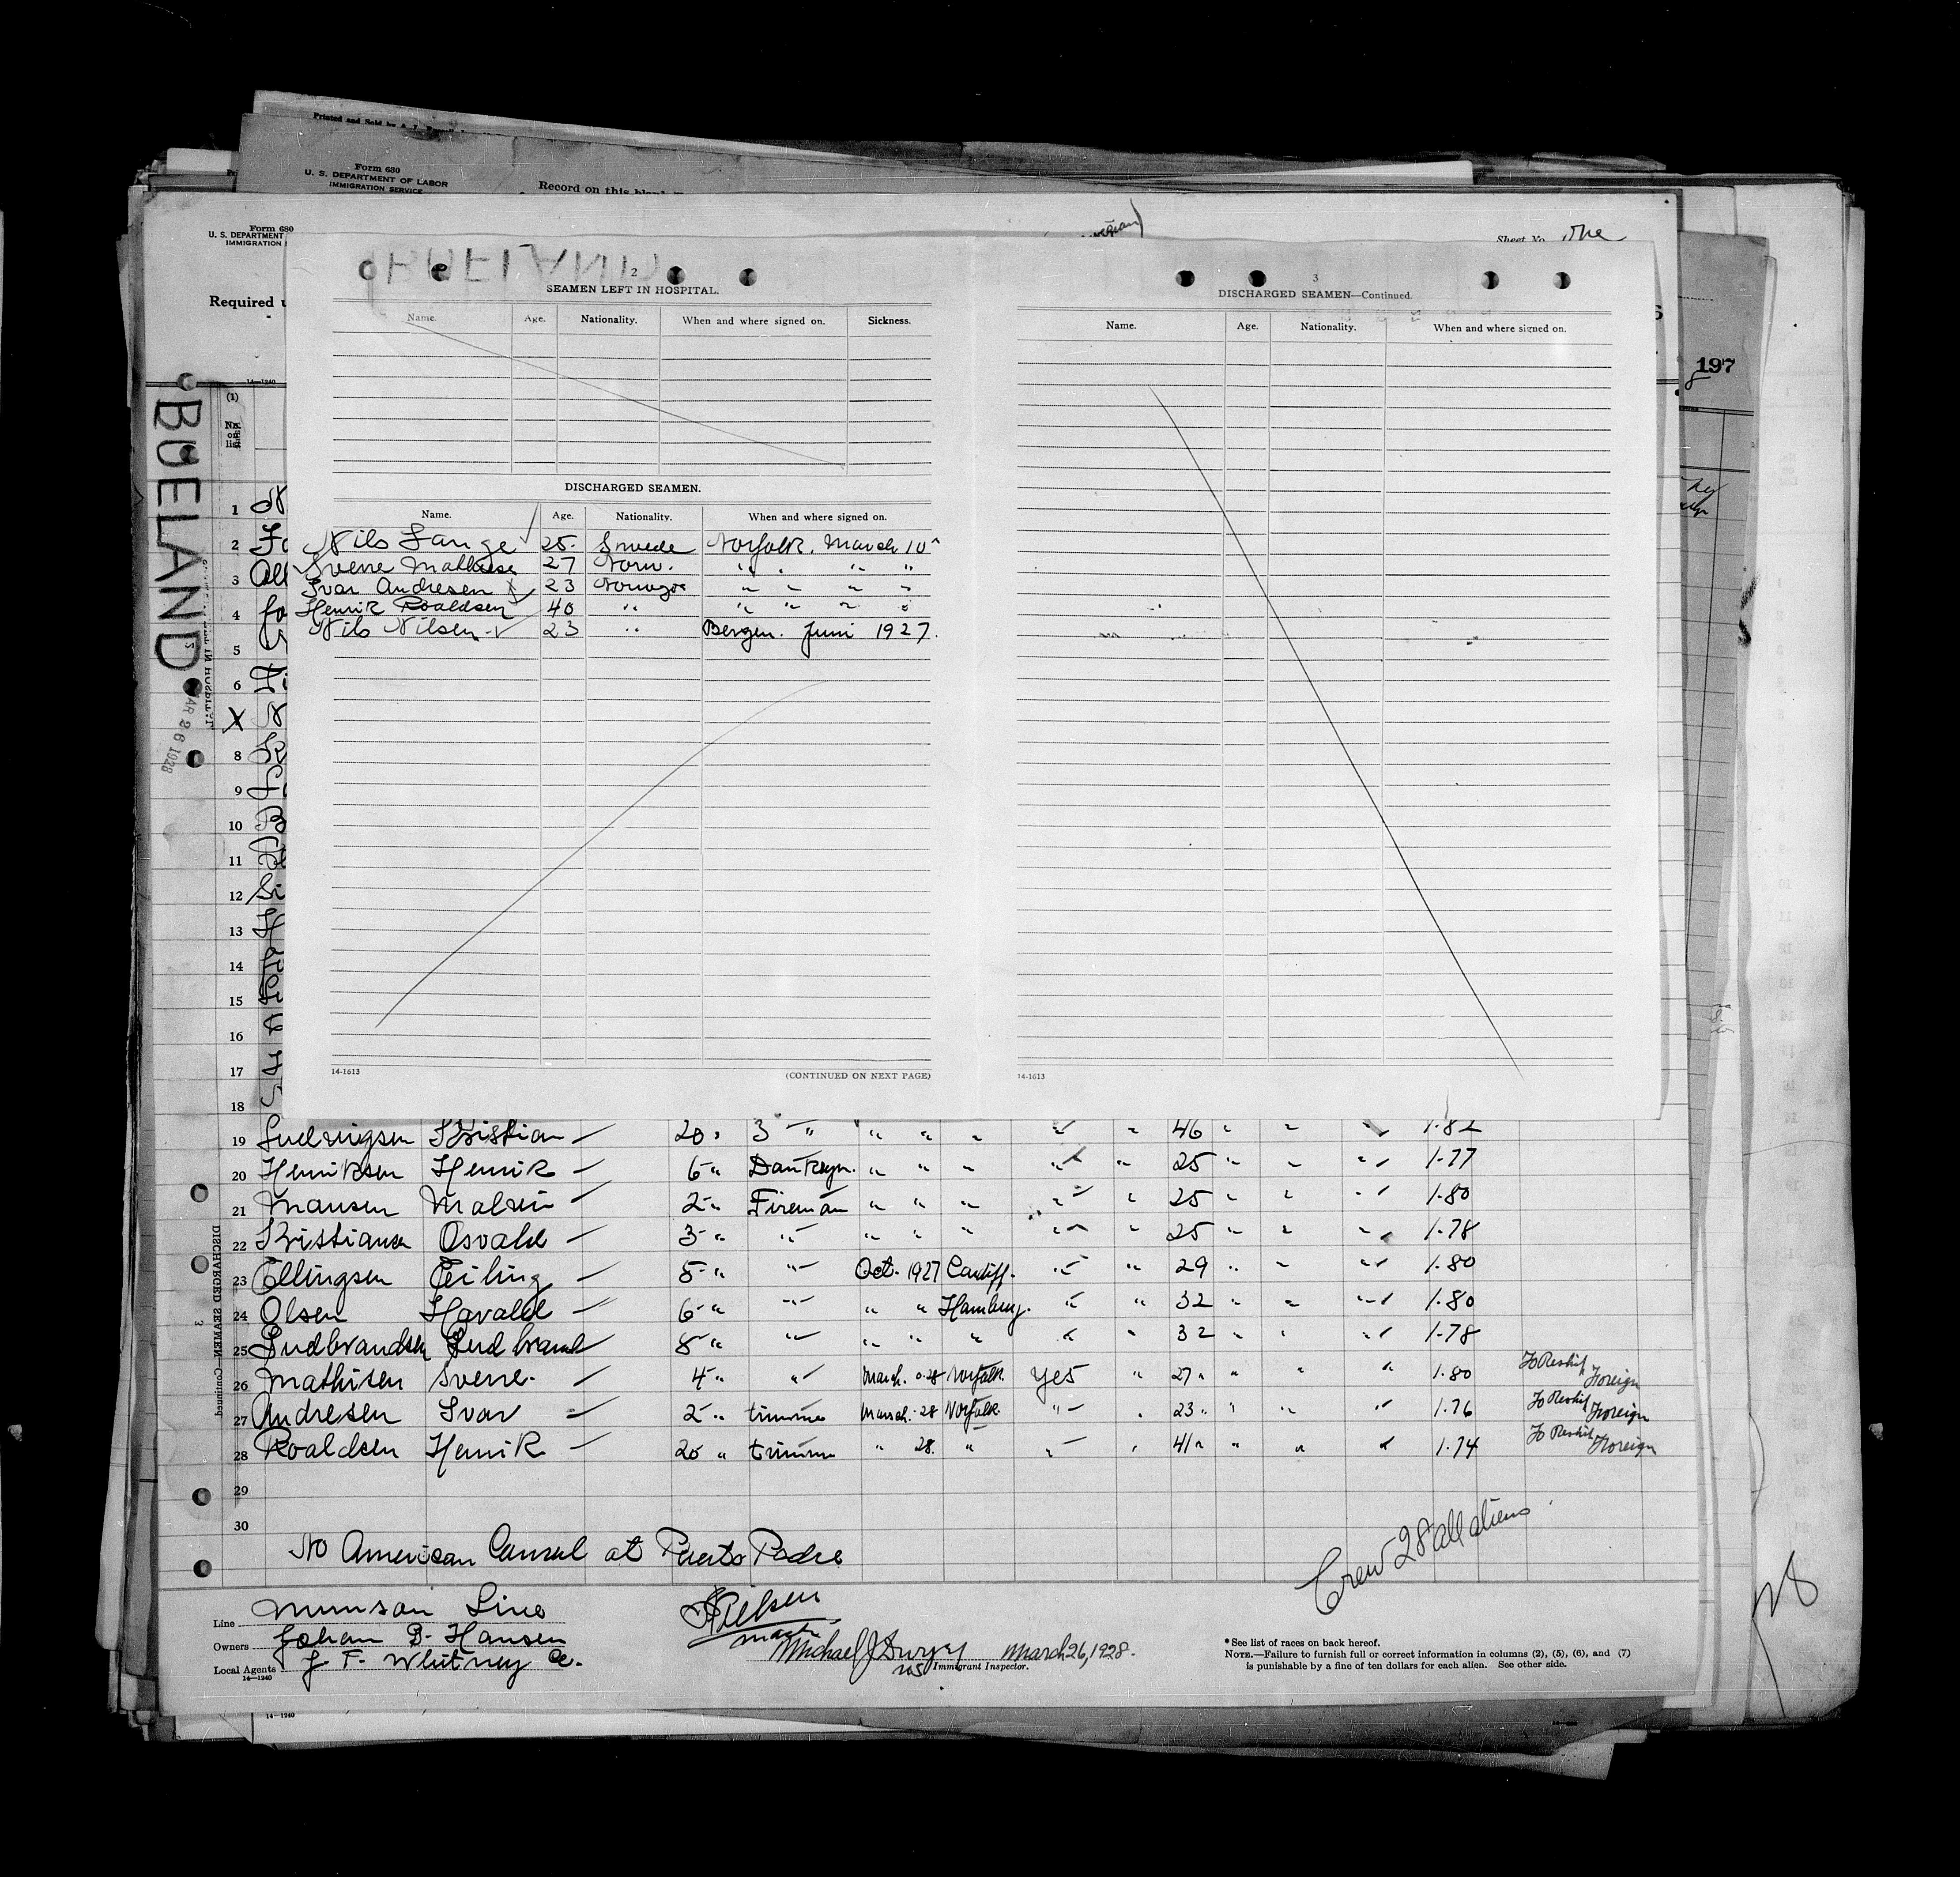 Printed and Sold by
Form 680
U. S. DEPARTMENT OF LABOR
IMMIGRATION SERVICE
Record on this
Form 680
U. S. DEPARTMENT
IMMIGRATION
Sheet No. One
Required
14-1240
197
(1)
No. on list
BUELAND
MAR 26 1928
2
SEAMEN LEFT IN HOSPITAL.
Name. Age. Nationality. When and where signed on. Sickness.
DISCHARGED SEAMEN.
Name. Age. Nationality. When and where signed on.
Nils Lange 25. Swede Norfolk. March 10
Sverre Mathisen 27 Norw. " " " "
Ivar Andresen 23 " " " "
Henrik Roaldsen 40 " " " " "
Nils Nilsen 23 " Bergen. Juni 1927.
14-1613
(CONTINUED ON NEXT PAGE)
3
DISCHARGED SEAMEN—Continued.
Name. Age. Nationality. When and where signed on.
14-1613
1
2
3
4
5
6
X
8
9
10
11
12
13
14
15
16
17
18
19 Ludvigsen Kristian 20 " 3 " " " " " " 46 " " " 1.82
20 Henriksen Henrik 6 " Dankeyn. " " " " " 25 " " " 1.77
21 Hansen Malvin 2 " Fireman " " " " " 25 " " " 1.80
22 Kristiansen Osvald 3 " " " " " " " 25 " " " 1.78
23 Ellingsen Erling 5 " " Oct. 1927 Cardiff. " " 29 " " " 1.80
24 Olsen Havald 6 " " " " Hamburg. " " 32 " " " 1.80
25 Gudbrandsen Gudbrand 8 " " " " " " " 32 " " " 1.78
26 Mathisen Sverre. 4 " " March. 28 Norfolk Yes " 27 " " " 1.80 To Reship Foreign
27 Andresen Ivar 2 " trimmer March. 28 Norfolk. " " 23 " " " 1.76 To Reship Foreign
28 Roaldsen Henrik 20 " trimmer " 28. " " " 41 " " " 1.74 To Reship Foreign
29
30
No American Consul at Puerto Padre
Crew 28 all aliens
Line Munson Line
Owners Johan B. Hansen
Local Agents J. F. Whitney Co.
14-1240
Nielsen
master
Michael J Dwyer March 26, 1928.
Immigrant Inspector.
* See list of races on back hereof.
NOTE.—Failure to furnish full or correct information in columns (2), (5), (6), and (7)
is punishable by a fine of ten dollars for each alien. See other side.
DISCHARGED SEAMEN—Continued
3
28
14-1240